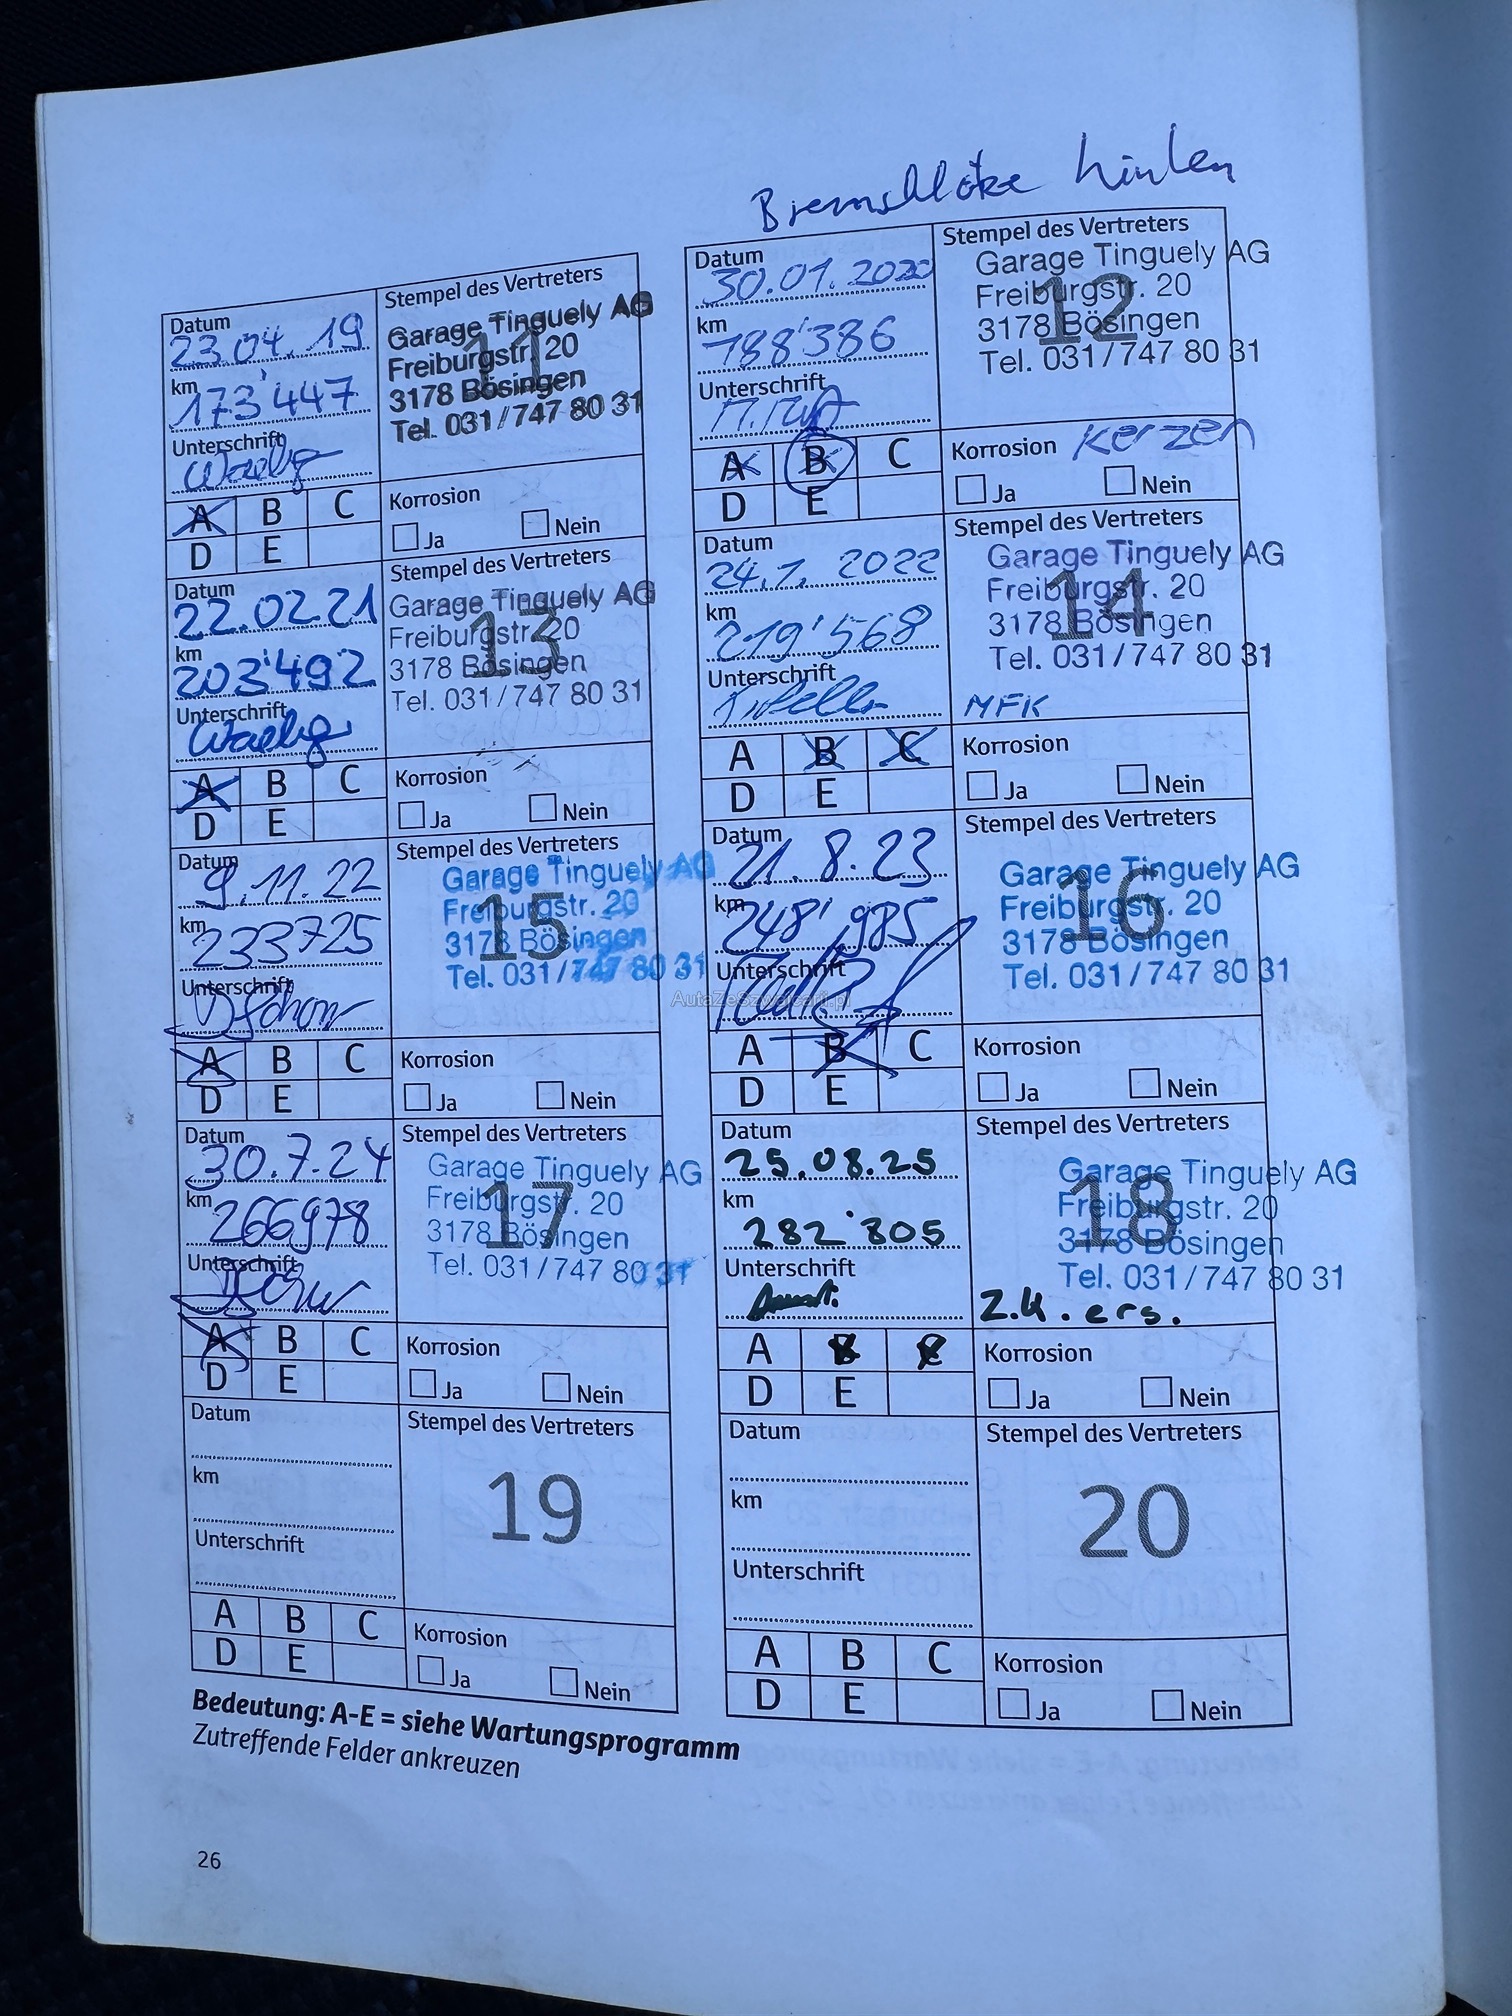 Bremsklötze hinten
Datum
23.04.19
km
173'447
Unterschrift
Stempel des Vertreters
11
Garage Tinguely AG
Freiburgstr. 20
3178 Bösingen
Tel. 031/747 80 31
A B C
D E
Korrosion
Ja Nein
Datum
30.01.2020
km
188'386
Unterschrift
Stempel des Vertreters
12
Garage Tinguely AG
Freiburgstr. 20
3178 Bösingen
Tel. 031/747 80 31
A B C
D E
Korrosion Kerzen
Ja Nein
Datum
22.02.21
km
203'492
Unterschrift
Stempel des Vertreters
13
Garage Tinguely AG
Freiburgstr. 20
3178 Bösingen
Tel. 031/747 80 31
A B C
D E
Korrosion
Ja Nein
Datum
24.1.2022
km
219'568
Unterschrift
Stempel des Vertreters
14
Garage Tinguely AG
Freiburgstr. 20
3178 Bösingen
Tel. 031/747 80 31
MFK
A B C
D E
Korrosion
Ja Nein
Datum
9.11.22
km
233725
Unterschrift
Stempel des Vertreters
15
Garage Tinguely AG
Freiburgstr. 20
3178 Bösingen
Tel. 031/747 80 31
A B C
D E
Korrosion
Ja Nein
Datum
21.8.23
km
248'985
Unterschrift
Stempel des Vertreters
16
Garage Tinguely AG
Freiburgstr. 20
3178 Bösingen
Tel. 031/747 80 31
AutaZeSzwajcarii.pl
A B C
D E
Korrosion
Ja Nein
Datum
30.7.24
km
266978
Unterschrift
Stempel des Vertreters
17
Garage Tinguely AG
Freiburgstr. 20
3178 Bösingen
Tel. 031/747 80 31
A B C
D E
Korrosion
Ja Nein
Datum
25.08.25
km
282'805
Unterschrift
Stempel des Vertreters
18
Garage Tinguely AG
Freiburgstr. 20
3178 Bösingen
Tel. 031/747 80 31
Z.K. ers.
A B C
D E
Korrosion
Ja Nein
Datum
km
Unterschrift
Stempel des Vertreters
19
A B C
D E
Korrosion
Ja Nein
Datum
km
Unterschrift
Stempel des Vertreters
20
A B C
D E
Korrosion
Ja Nein
Bedeutung: A-E = siehe Wartungsprogramm
Zutreffende Felder ankreuzen
26